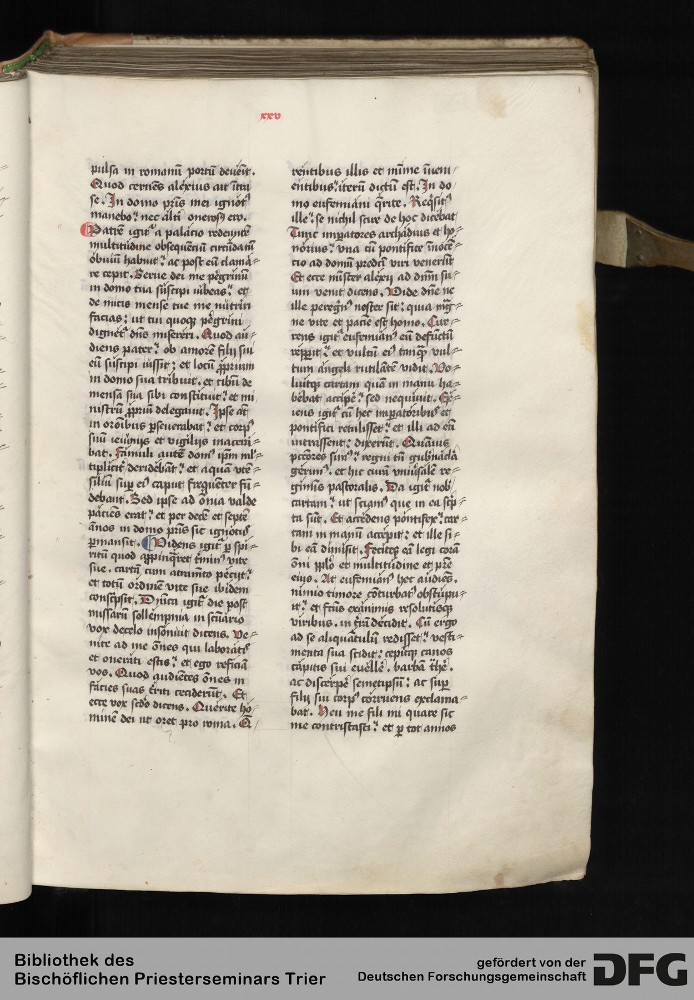 xxv
pulsa in romanū portū deuēit.
Quod cernēs alexius ait ītra
se. In domo pr̄is mei ignotꝰ
manebo? nec alti onerosꝰ ero.
Patrē igitꝰ a palacio redeuntē
multitudine obsequenciū circūdatū
obuiū habuit? ac post eū clama=
re cepit. Serue dei me pegrinū
in domo tua suscipi iubeas? et
de micis mense tue me nūtriri
facias? ut tui quoqꝫ pegrini
dignet dn̄s misereri. Quod au=
diens pater? ob amorē filij sui
eū suscipi iussit? et locū ꝓprium
in domo sua tribuit. et cibū de
mensa sua sibi constituit? et mi
nistrū ꝓpriū delegauit. Ipse aūt
in orōibus pseuerabat? et corpꝰ
suū ieiunijs et vigilijs maceri=
bat. Famuli autē domꝰ ip̄m ml̄=
tiplicit deridebāt? et aquā vtē=
siliū sup eiꝰ caput frequenter fū=
debant. Sed ipse ad om̄ia valde
paciēs erat? et per decē et septē
annos in domo pr̄is sic ignotꝰ
pmansit. Videns igitꝰ p spi=
ritū quod appinqret t̄minꝰ vite
sue. cartā cum atramēto peciit?
et totū ordinē vite sue ibidem
conscpsit. Dn̄ica igitꝰ die post
missarū sollempnia in scūario
vox decelo insonuit dicens. Ve=
nite ad me ōnes qui laboratꝭ
et onerati estis? et ego reficiā
vos. Quod audientes ōnes in
facies suas t̄riti ceciderūt. Et
ecce vox sēdo dicens. Querite ho=
minē dei ut oret pro roma. Q̄=
rentibus illis et mīme īueni=
entibus? iterū dictū est. In do=
mo eufemiani q̄rite. Reqͥsitꝰ
ille? se nichil scire de hoc dicebat
Tunc imꝑatores archadius et ho=
norius? vna cū pontifice ināocē=
cio ad domū predicti viri venerūt
Et ecce mīster alexij ad dn̄m su=
um venit dicens. Vide dn̄e ne
ille peregrinꝰ noster sit? quia mḡ=
ne vite et pacīe est homo. Cur=
rens igitꝰ eufemianꝰ eū defūctū
reppit? et vultū eiꝰ tmqꝫ vul=
tum angeli rutilātē vidit. Vo=
luitqꝫ cartam quā in manu ha=
bebat accipe? sed nequiuit. Ex=
iens igitꝰ cū hec imꝑatoribus et
pontifici retulisset? et illi ad eū
intrassent? dixerūt. Quāuis
pctōres simꝰ? regni tn̄ gubnacla
gerimꝰ. et hic curā vniūsalē re=
giminis pastoralis. Da igitꝰ nob
cartam? ut sciamꝰ que in ea sc̄p=
ta sūt. Et accedens pontifex? car=
tam in manū accepit? et ille si=
bi eā dimisit. Fecitqꝫ eā legi corā
om̄i pplo et multitudine et pr̄e
eius. At eufemianꝰ hec audiēs.
nimio timore cōturbatꝰ obstipu=
it? et fcūs exanimis resolutisqꝫ
viribus. in t̄rā decidit. Cū ergo
ad se aliquātulū redisset? vesti=
menta sua scidit? cepitqꝫ canos
capitis sui euellē. barbā t̄hē.
ac discerpē semetipsū? ac sup
filij sui corpꝰ corruens exclama=
bat. Heu me fili mi quare sic
me contristasti? et p tot annos
Bibliothek des
Bischöflichen Priesterseminars Trier
gefördert von der
Deutschen Forschungsgemeinschaft
DFG